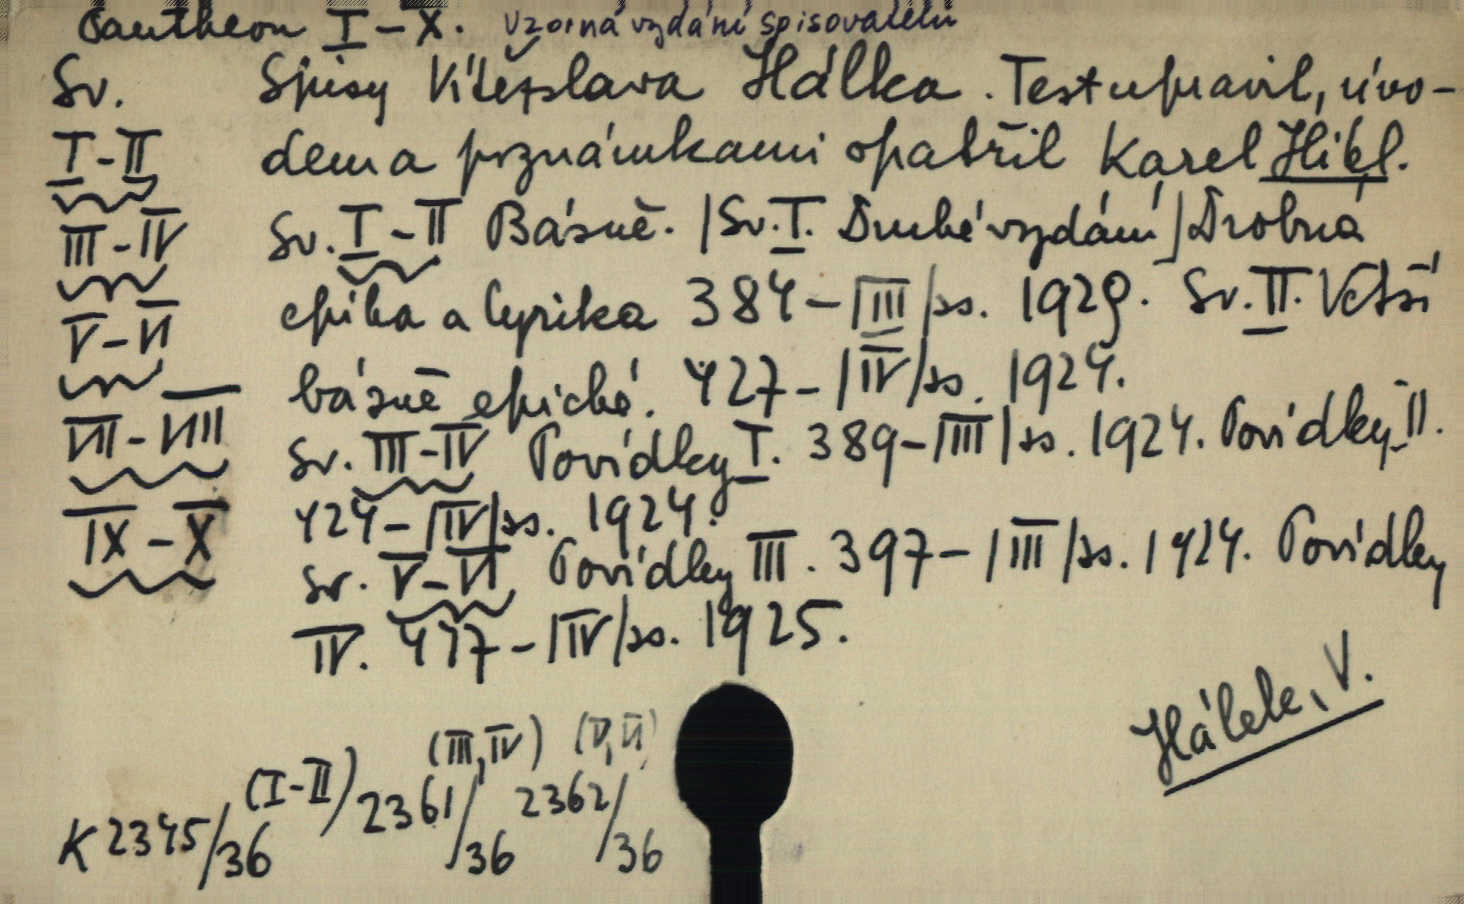 Pantheon I–X. Vzorná vydání spisovatelů
Sv. Spisy Vítězslava Hálka. Text upravil, úvo-
I-II dem a poznámkami opatřil Karel Hikl.
III-IV Sv. I-II Básně. |Sv. I. Druhé vydání| Drobná
epika a lyrika 384–|III|ss. 1929. Sv. II. Větší
V-VI básně epické. 427–|IV|ss. 1924.
VII-VIII Sv. III-IV Povídky I. 389–|III|ss. 1924. Povídky II.
IX-X 424–|IV|ss. 1924.
Sv. V-VI Povídky III. 397–|III|ss. 1924. Povídky
IV. 417–|IV|ss. 1925.
Hálek, V.
(I-II) (III, IV) (V, VI)
K 2345/36 2361/36 2362/36